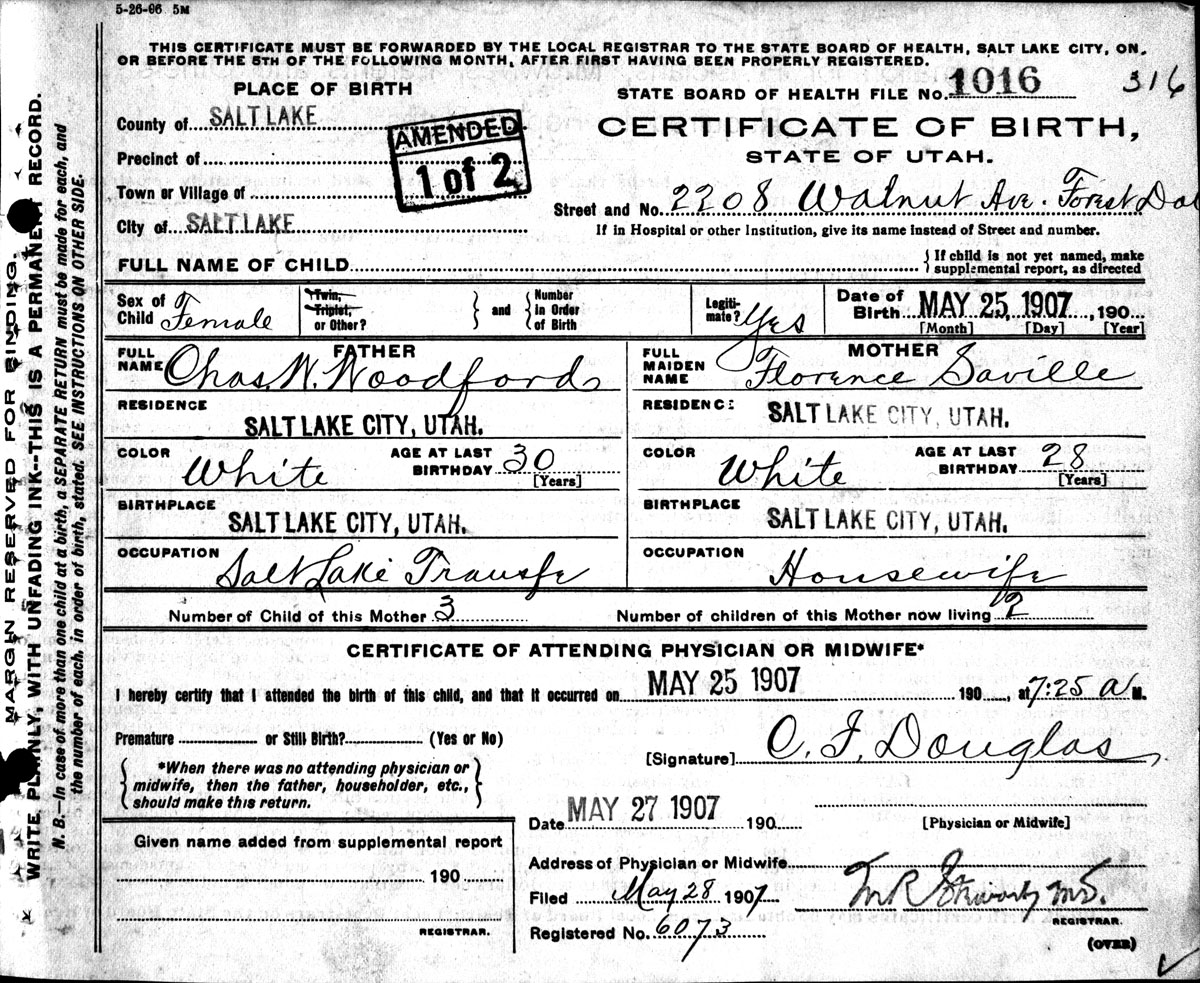 5-26-06 5M
THIS CERTIFICATE MUST BE FORWARDED BY THE LOCAL REGISTRAR TO THE STATE BOARD OF HEALTH, SALT LAKE CITY, ON,
OR BEFORE THE 5TH OF THE FOLLOWING MONTH, AFTER FIRST HAVING BEEN PROPERLY REGISTERED.
PLACE OF BIRTH
STATE BOARD OF HEALTH FILE No. 1016 316
County of SALT LAKE
AMENDED
1 of 2
CERTIFICATE OF BIRTH,
STATE OF UTAH.
Precinct of
Town or Village of
Street and No. 2208 Walnut Ave. Forest Dal
City of SALT LAKE
If in Hospital or other Institution, give its name instead of Street and number.
FULL NAME OF CHILD
} If child is not yet named, make
supplemental report, as directed
Sex of
Child Female
Twin,
Triplet,
or Other?
} and {
Number
in Order
of Birth
Legiti-
mate? Yes
Date of
Birth MAY 25, 1907, 190
[Month] [Day] [Year]
FATHER
FULL
NAME Chas. W. Woodford
MOTHER
FULL
MAIDEN
NAME Florence Saville
RESIDENCE
SALT LAKE CITY, UTAH.
RESIDENCE
SALT LAKE CITY, UTAH.
COLOR
White
AGE AT LAST
BIRTHDAY 30
[Years]
COLOR
White
AGE AT LAST
BIRTHDAY 28
[Years]
BIRTHPLACE
SALT LAKE CITY, UTAH.
BIRTHPLACE
SALT LAKE CITY, UTAH.
OCCUPATION
Salt Lake Transfe
OCCUPATION
Housewife
Number of Child of this Mother 3
Number of children of this Mother now living 2
CERTIFICATE OF ATTENDING PHYSICIAN OR MIDWIFE*
I hereby certify that I attended the birth of this child, and that it occurred on MAY 25 1907 190, at 7:25 a M.
Premature or Still Birth? (Yes or No)
[Signature] C. F. Douglas
{ *When there was no attending physician or
midwife, then the father, householder, etc.,
should make this return. }
Date MAY 27 1907 190
[Physician or Midwife]
Given name added from supplemental report
190
REGISTRAR.
Address of Physician or Midwife
Filed May 28 1907
REGISTRAR.
Registered No. 6073
(OVER)
MARGIN RESERVED FOR BINDING.
WRITE PLAINLY, WITH UNFADING INK--THIS IS A PERMANENT RECORD.
N. B.--In case of more than one child at a birth, a SEPARATE RETURN must be made for each, and
the number of each, in order of birth, stated. SEE INSTRUCTIONS ON OTHER SIDE.